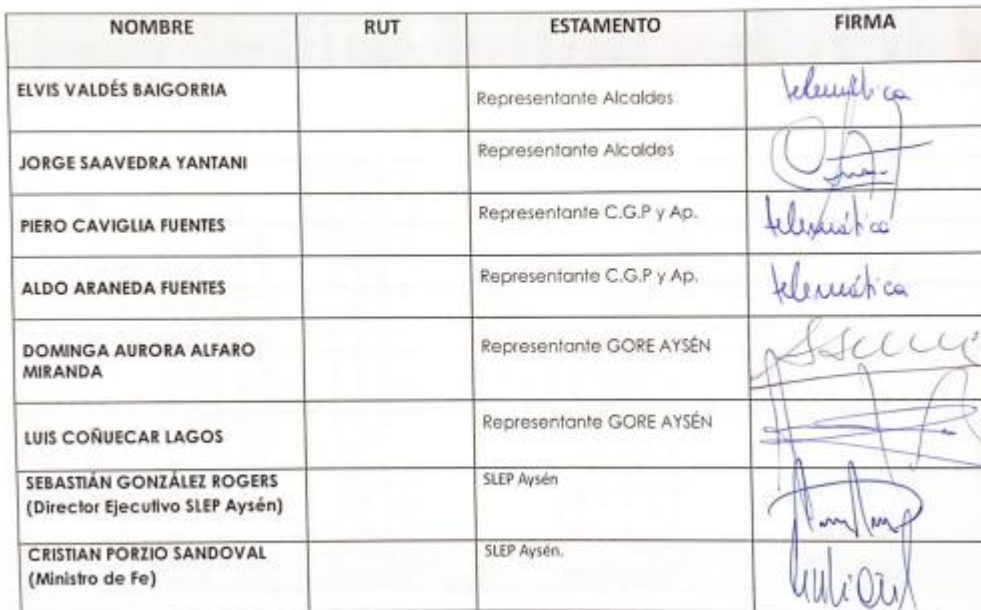 NOMBRE RUT ESTAMENTO FIRMA
ELVIS VALDÉS BAIGORRIA Representante Alcaldes telemática
JORGE SAAVEDRA YANTANI Representante Alcaldes
PIERO CAVIGLIA FUENTES Representante C.G.P y Ap. telemática
ALDO ARANEDA FUENTES Representante C.G.P y Ap. telemática
DOMINGA AURORA ALFARO
MIRANDA Representante GORE AYSÉN
LUIS COÑUECAR LAGOS Representante GORE AYSÉN
SEBASTIÁN GONZÁLEZ ROGERS SLEP Aysén
(Director Ejecutivo SLEP Aysén)
CRISTIAN PORZIO SANDOVAL SLEP Aysén.
(Ministro de Fe)